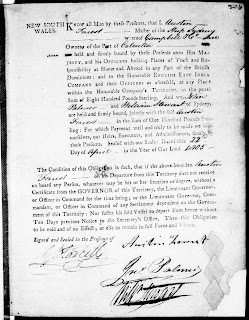 NEW SOUTH
WALES.
KNOW all Men by these Presents, that I, Austin
Forrest Master of the Ship Sydney
Owners of the Port of Calcutta
are held and firmly bound by these Presents unto His MA-
JESTY, and his OFFICERS holding Places of Trust and Re-
sponsibility at Home and Abroad in any Part of the British
Dominions; and to the HONORABLE DIRECTORS EAST INDIA
COMPANY and their OFFICERS as aforesaid, in any Part of
their COMPANY'S TERRITORIES or Possessions, in the penal
Sum of Eight Hundred Pounds Sterling. And we John
Palmer and William Stewart of Sydney,
are held and firmly bound, jointly with the said Austin
Forrest in the Sum of Pounds Sterling
For which Payment well and truly to be made we bind
ourselves, our Heirs, Executors, and Administrators, firmly by
these Presents. Sealed with our Seals: Dated this
Day of April in the Year of Our Lord 1805.
The Condition of this Obligation is such, that if the above-bounden Austin
Forrest at his Departure from this Territory does not receive
on board any Person, whatever may be his or her situation or degree, without a
Certificate from the GOVERNOR of this TERRITORY, the Lieutenant Governor,
or Officer in Command for the time being; or the Lieutenant Governor, Comman-
dant, or Officer in Command of any Settlement dependent on the Govern-
ment of this Territory; Nor suffer his said Vessel to depart from hence without
Ten Days previous Notice in the Secretary's Office. Then this Obligation
to be void and of no Effect, or else to remain in full Force and Virtue.
Signed and Sealed in the Presence of
Austin Forrest
Jno Palmer
Will Stewart